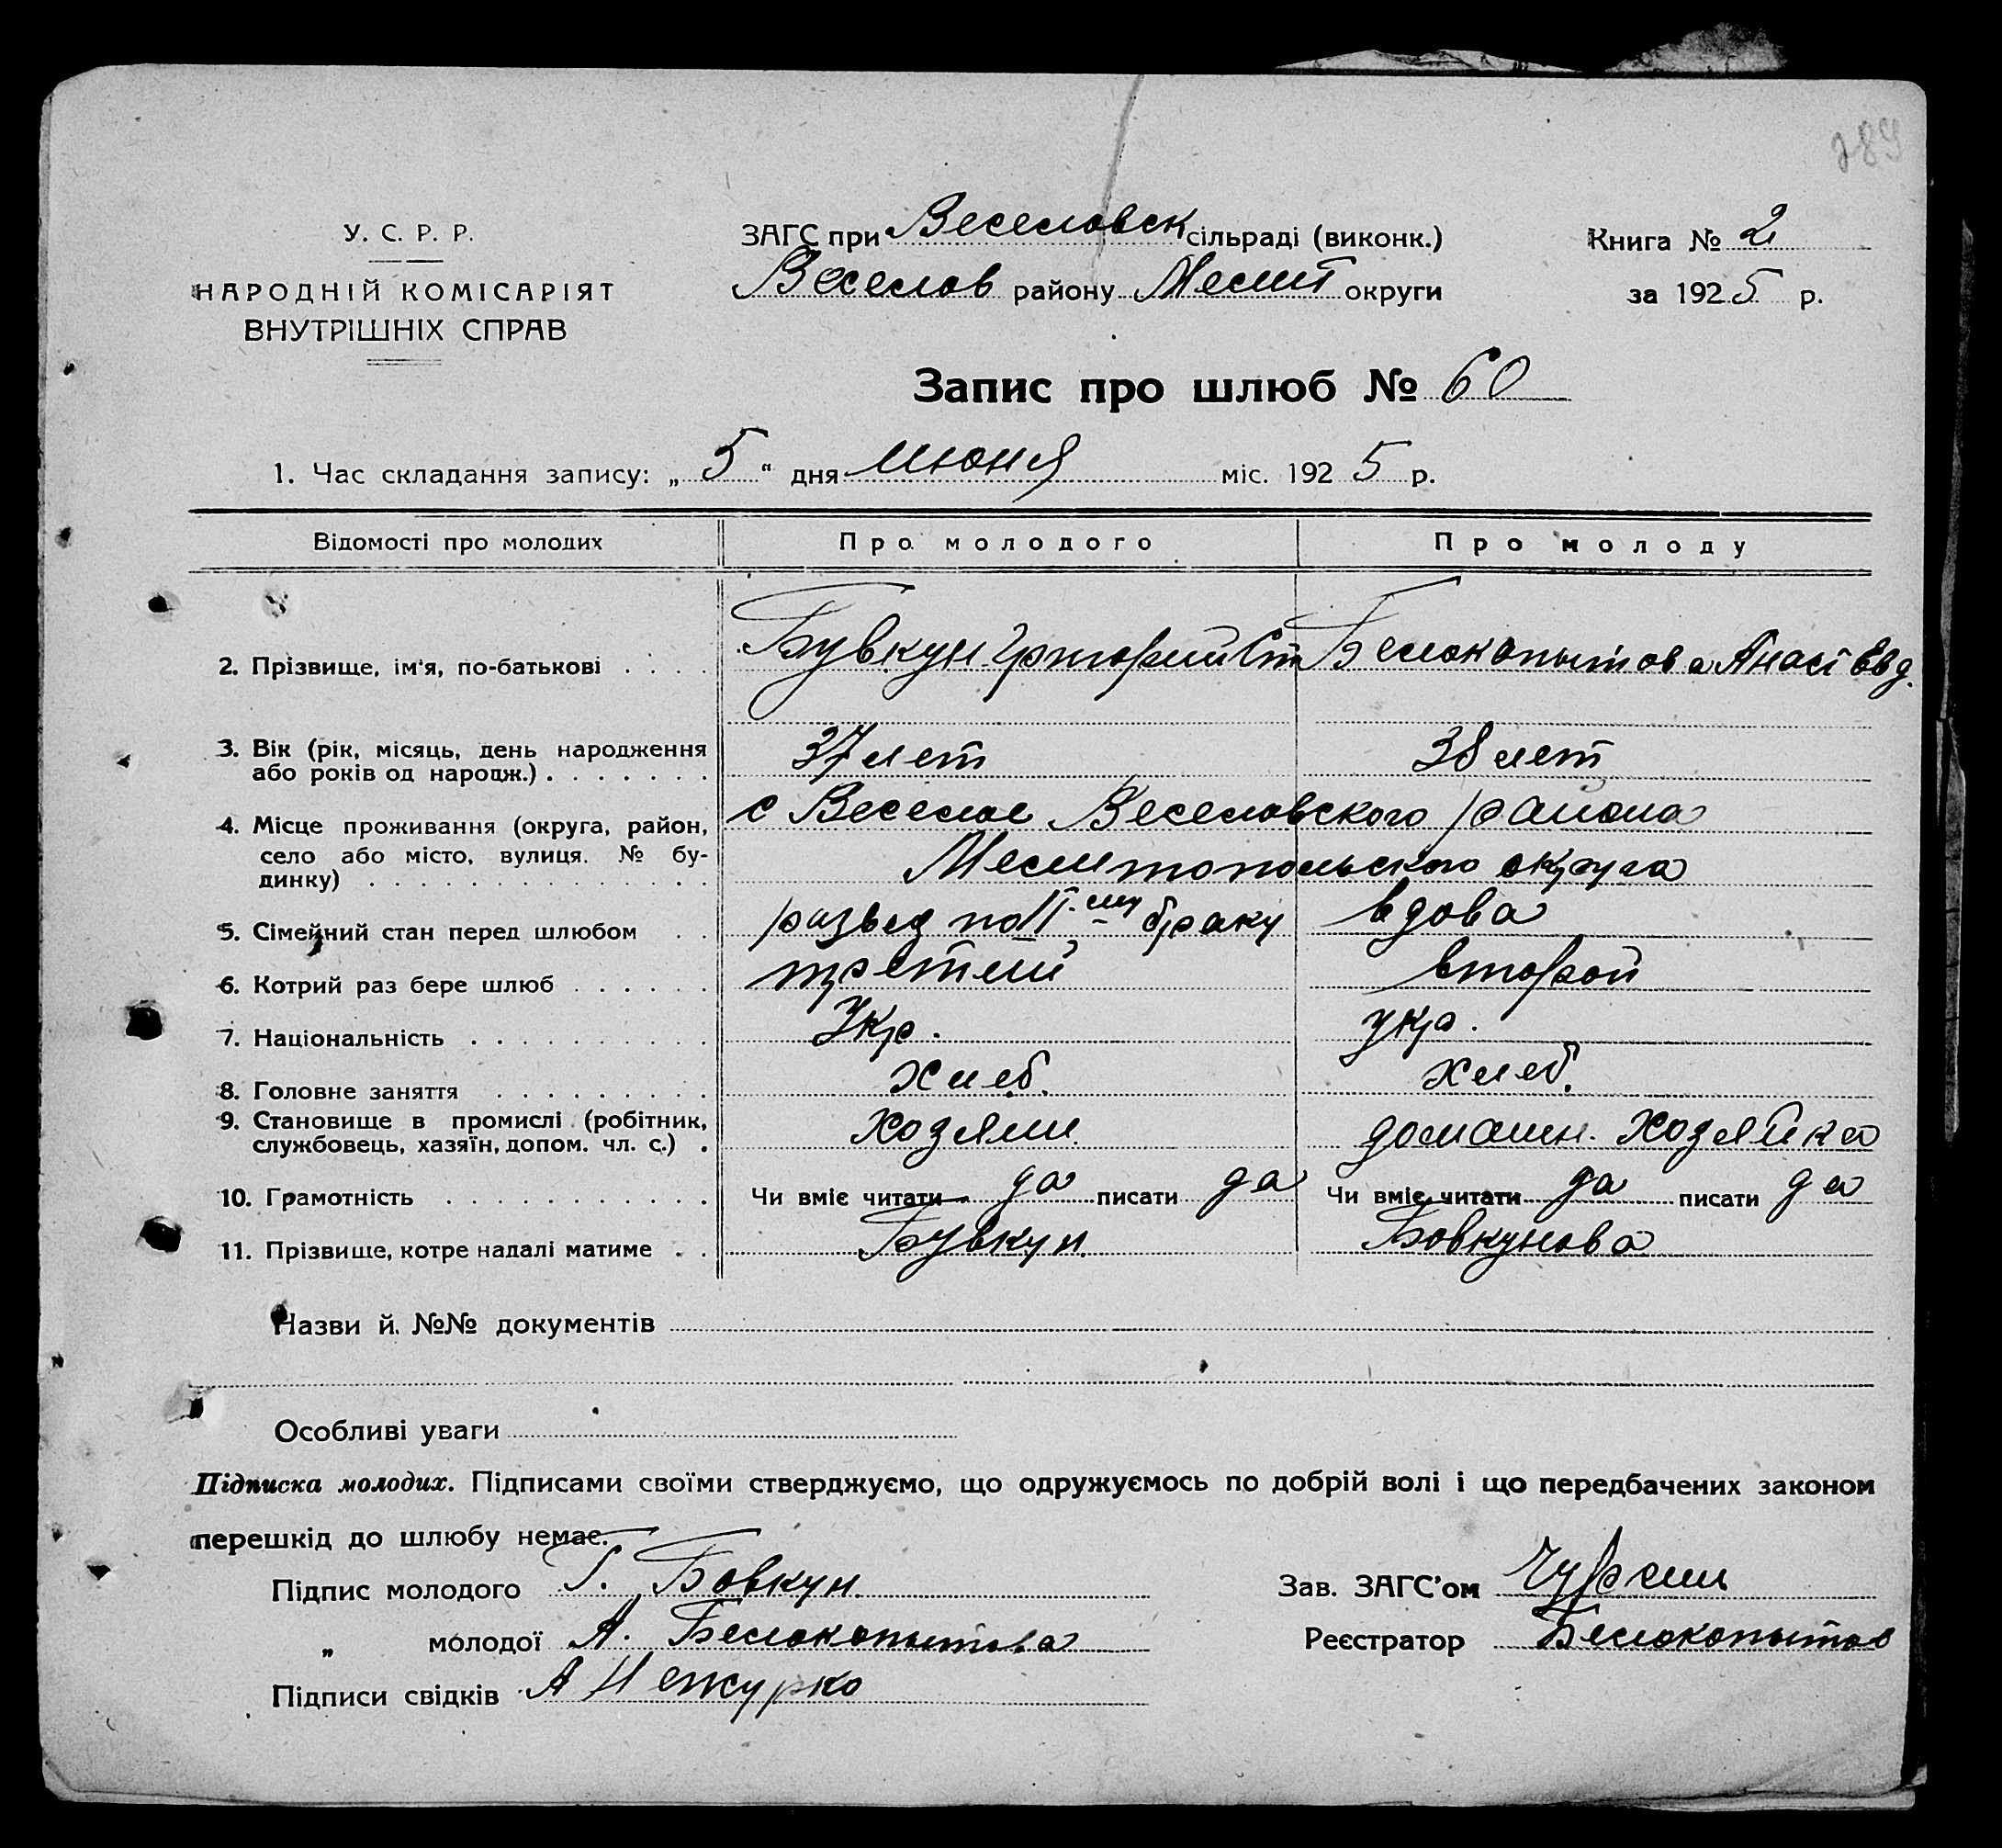 289
У. С. Р. Р.
НАРОДНІЙ КОМІСАРІЯТ
ВНУТРІШНІХ СПРАВ
ЗАГС при Веселовск сільраді (виконк.)
Веселов району Мелит округи
Книга № 2
за 1925 р.
Запис про шлюб № 60
1. Час складання запису: „5“ дня июня міс. 1925 р.
Відомості про молодих
Про молодого
Про молоду
2. Прізвище, ім'я, по-батькові . . . .
Бувкун Григорий Ст
Белокопытова Анаст Евд.
3. Вік (рік, місяць, день народження
або років од народж.) . . . . . . .
37 лет
38 лет
4. Місце проживання (округа, район,
село або місто, вулиця. № бу-
динку) . . . . . . . . . . . . . .
с Веселое Веселовского района
Мелитопольского округа
5. Сімейний стан перед шлюбом . .
развед по II-му браку
вдова
6. Котрий раз бере шлюб . . . . . .
третий
второй
7. Національність . . . . . . . . . .
Укр.
укр.
8. Головне заняття . . . . . . . . .
Хлеб.
хлеб.
9. Становище в промислі (робітник,
службовець, хазяїн, допом. чл. с.) .
Хозяин.
домашн. Хозяйка
10. Грамотність . . . . . . . . . . .
Чи вміє читати да писати да
Чи вміє читати да писати да
11. Прізвище, котре надалі матиме . .
Бувкун.
Бовкунова
Назви й. №№ документів
Особливі уваги
Підписка молодих. Підписами своїми стверджуємо, що одружуємось по добрій волі і що передбачених законом
перешкід до шлюбу немає.
Підпис молодого Г. Бовкун
„ молодої А. Белокопытова
Підписи свідків А Нежурко
Зав. ЗАГС'ом Чурсин
Реєстратор Белокопытов